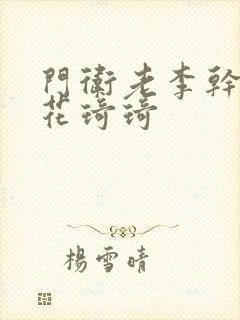 門衛老李幹
花琦琦
楊雪晴